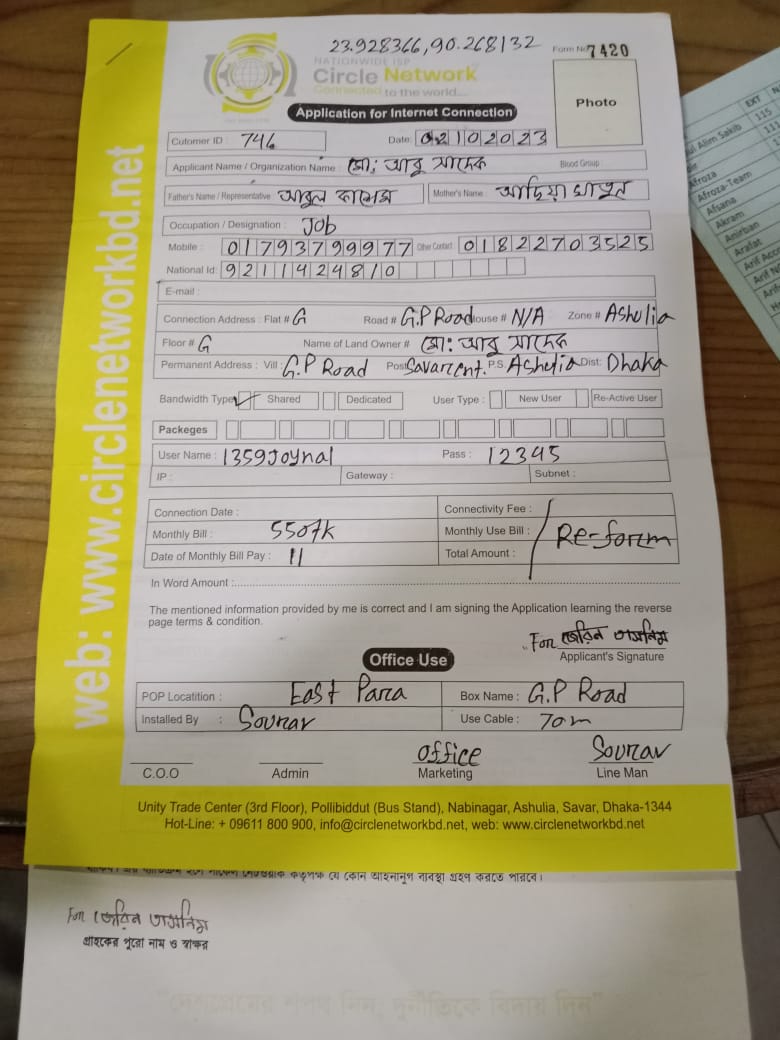 23.928366,90.268132
Form No 7420
NATIONWIDE ISP
Circle Network
Connected to the world...
Application for Internet Connection
Photo
Cutomer ID : 746
Date: 02102023
Applicant Name / Organization Name : মো: আবু সাদেক Blood Group :
Father's Name / Representative : আবুল কাশেম Mother's Name : খাতুন
Occupation / Designation : Job
Mobile : 01793799977 Other Contact 01822703525
National Id: 9211424810
E-mail :
Connection Address : Flat # G Road # G.P Road House # N/A Zone # Ashulia
Floor # G Name of Land Owner # মো: আবু সাদেক
Permanent Address : Vill : G.P Road Post Savar Cent. P.S Ashulia Dist: Dhaka
Bandwidth Type Shared Dedicated User Type : New User Re-Active User
Packeges
User Name : 1359Joynal Pass : 12345
IP : Gateway : Subnet :
Connection Date : Connectivity Fee :
Monthly Bill : 550Tk Monthly Use Bill : Re-form
Date of Monthly Bill Pay : 11 Total Amount :
In Word Amount :
The mentioned information provided by me is correct and I am signing the Application learning the reverse
page terms & condition.
For জেরিন তাসনিম
Applicant's Signature
Office Use
POP Locatition : East Para Box Name : G.P Road
Installed By : Sourav Use Cable : 70m
Office Sourav
C.O.O Admin Marketing Line Man
Unity Trade Center (3rd Floor), Pollibiddut (Bus Stand), Nabinagar, Ashulia, Savar, Dhaka-1344
Hot-Line: + 09611 800 900, info@circlenetworkbd.net, web: www.circlenetworkbd.net
web: www.circlenetworkbd.net
কর্তৃপক্ষ যে কোন আইনানুগ ব্যবস্থা গ্রহণ করতে পারবে।
For জেরিন তাসনিম
গ্রাহকের পুরো নাম ও স্বাক্ষর
"দেশপ্রেমের শপথ নিন, দুর্নীতিকে বিদায় দিন"
EXT
Alim Sakib 115
Afroza
Afroza-Team
Afsana
Akram
Anirban
Arafat